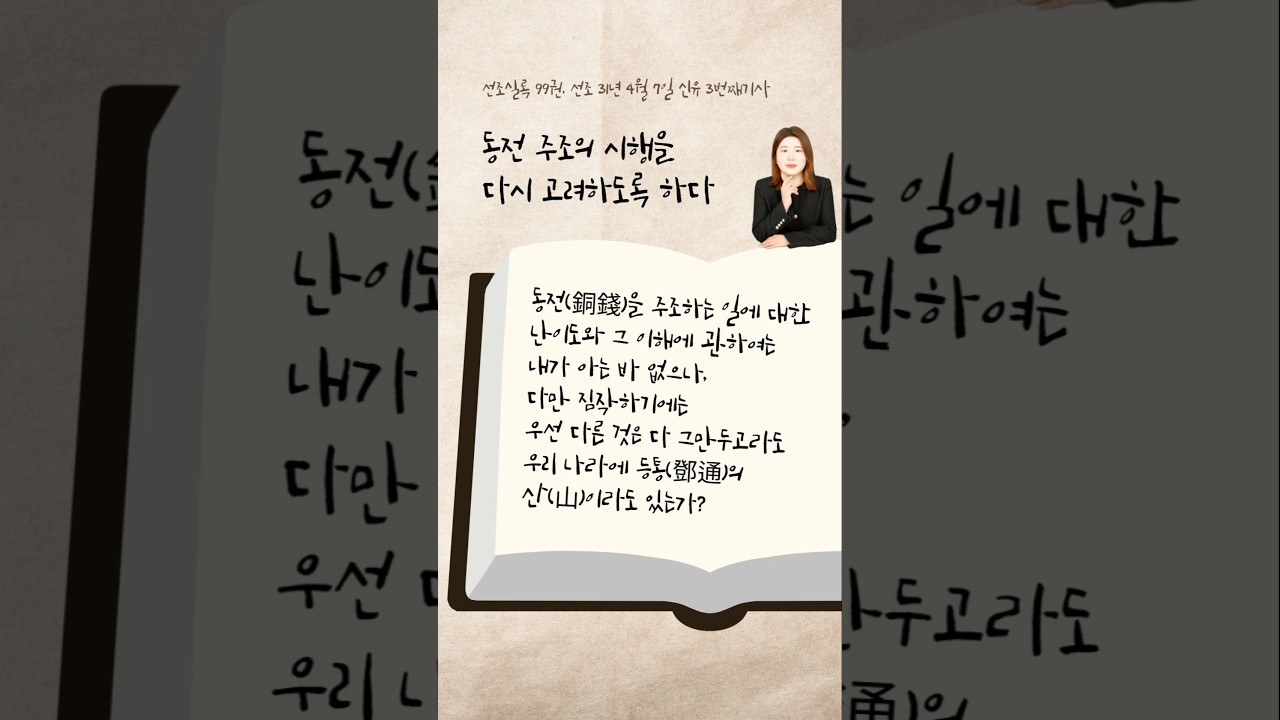 선조실록 99권, 선조 31년 4월 7일 신유 3번째기사
동전 주조의 시행을
다시 고려하도록 하다
동전(銅錢)을 주조하는 일에 대한
난이도와 그 이해에 관하여는
내가 아는 바 없으나,
다만 짐작하기에는
우선 다른 것은 다 그만두고라도
우리 나라에 등통(鄧通)의
산(山)이라도 있는가?
동전(
난이도
내가
다만
우선
우리
는 일에 대한
관하여는
두고라도